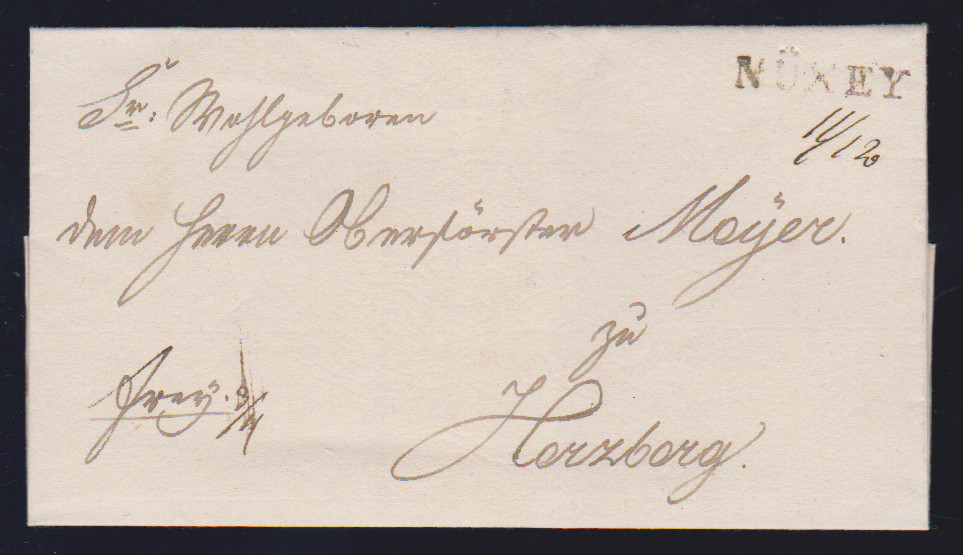 NÜXEY
11/12
Sr: Wohlgeboren
dem Herrn Oberförster Meÿer.
zu
Herzberg.
freÿ.